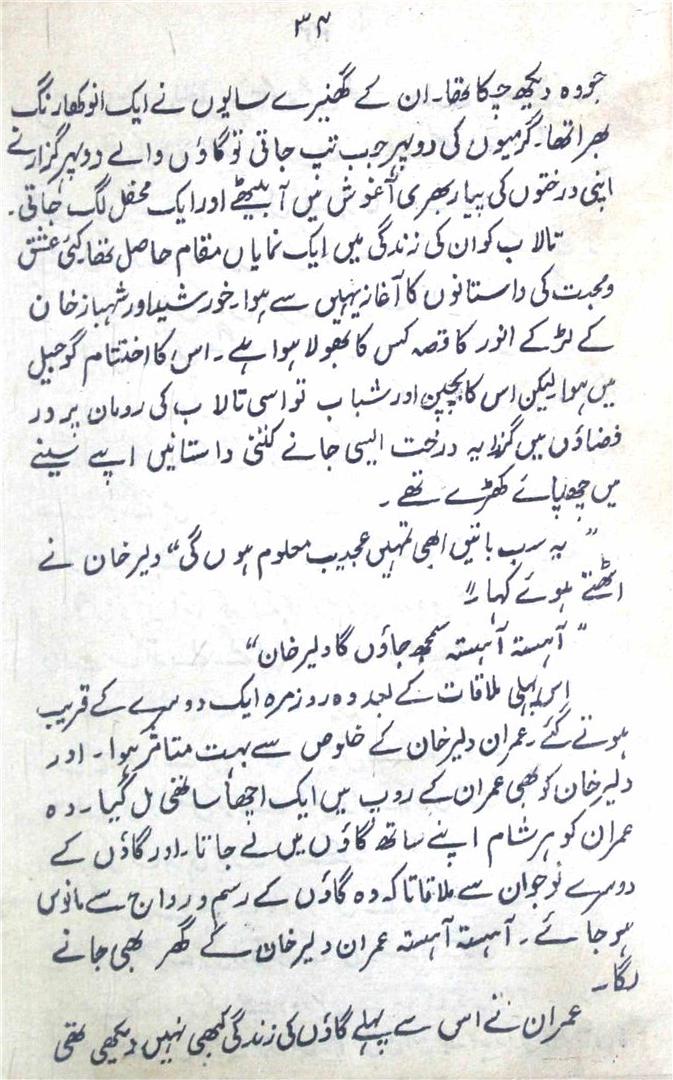 ۳۴
جو وہ دیکھ چکا تھا۔ ان کے گھنیرے سایوں نے ایک انوکھا رنگ
بھرا تھا۔ گرمیوں کی دوپہر جب تپ جاتی تو گاؤں والے دوپہر گزارنے
اپنی درختوں کی پیار بھری آغوش میں آ بیٹھے اور ایک محفل لگ جاتی۔
تالاب کو ان کی زندگی میں ایک نمایاں مقام حاصل تھا۔ کئی عشق
و محبت کی داستانوں کا آغاز یہیں سے ہوا۔ خورشید اور شہباز خان
کے لڑکے انور کا قصہ کس کا بھولا ہوا ہے۔ اس کا اختتام گو جیل
میں ہوا لیکن اس کا بچپن اور شباب تو اسی تالاب کی رومان پرور
فضاؤں میں گزرا یہ درخت ایسی جانے کتنی داستانیں اپنے سینے
میں چھپائے کھڑے تھے۔
" یہ سب باتیں ابھی تمہیں عجیب معلوم ہوں گی" دلیر خان نے
اٹھتے ہوئے کہا۔"
" آہستہ آہستہ سمجھ جاؤں گا دلیر خان"
اس پہلی ملاقات کے بعد وہ روزمرہ ایک دوسرے کے قریب
ہوتے گئے۔ عمران دلیر خان کے خلوص سے بہت متاثر ہوا۔ اور
دلیر خان کو بھی عمران کے روپ میں ایک اچھا ساتھی مل گیا۔ وہ
عمران کو ہر شام اپنے ساتھ گاؤں میں لے جاتا۔ اور گاؤں کے
دوسرے نوجوان سے ملاقاتا کہ وہ گاؤں کے رسم و رواج سے مانوس
ہو جائے۔ آہستہ آہستہ عمران دلیر خان کے گھر بھی جانے
لگا۔
عمران نے اس سے پہلے گاؤں کی زندگی کبھی نہیں دیکھی تھی